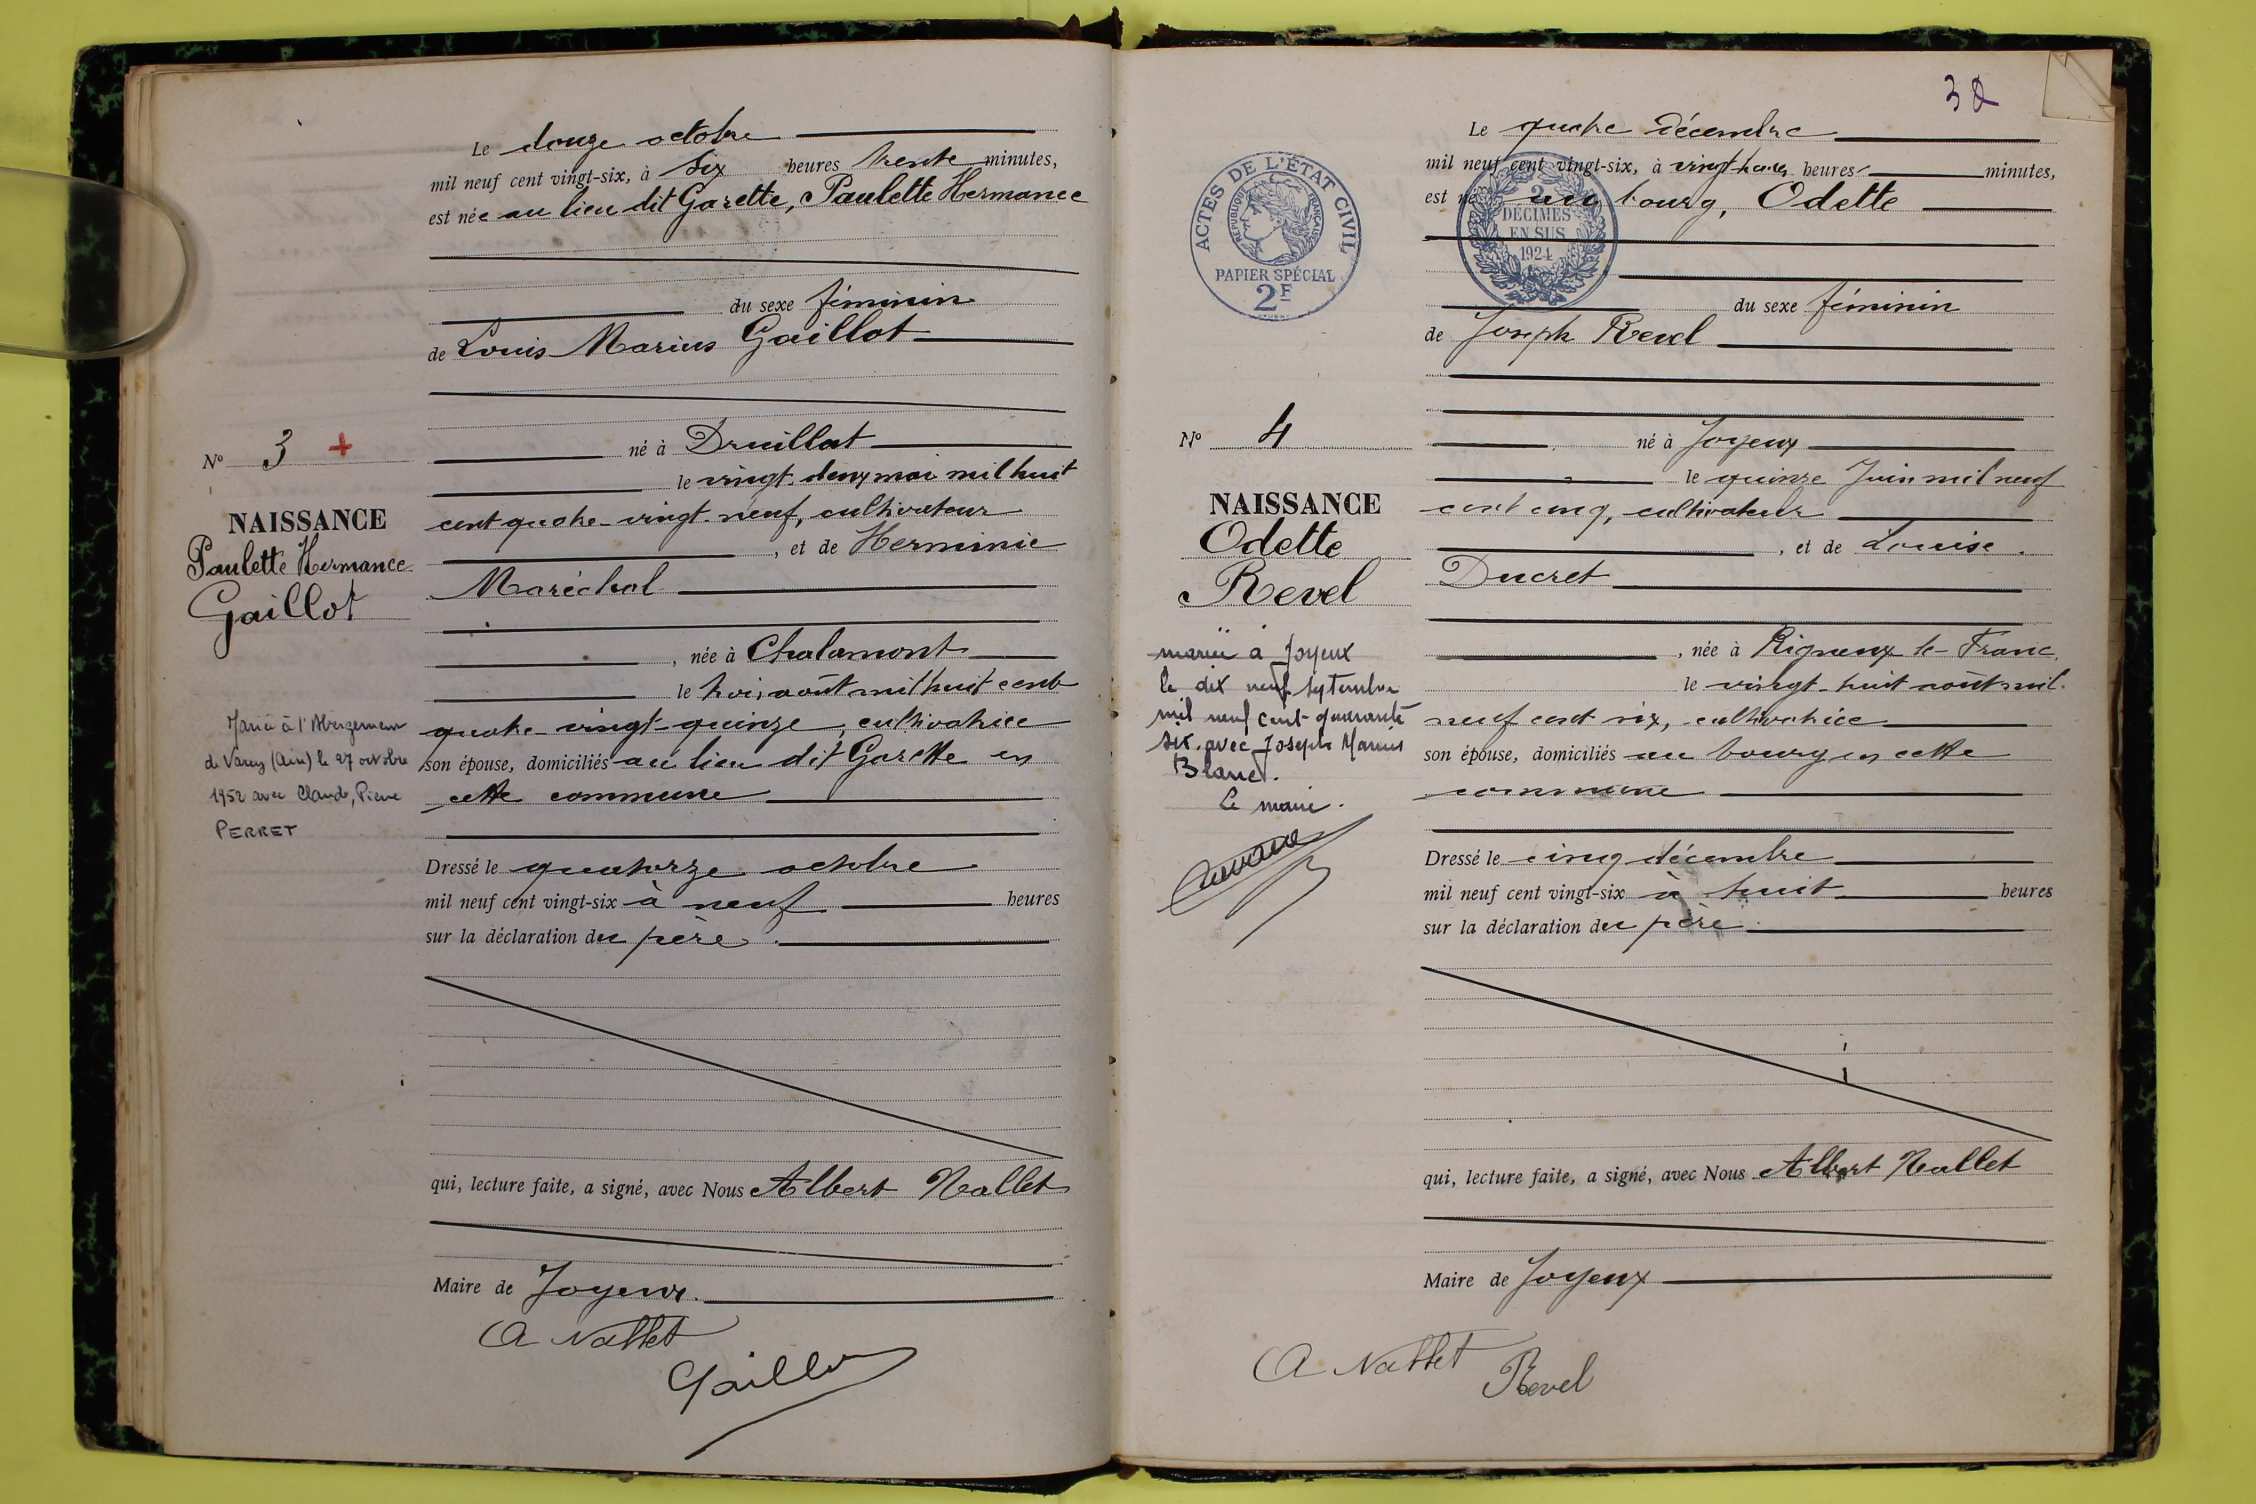 Le douze octobre
mil neuf cent vingt-six, à six heures trente minutes,
est née au lieu dit Garette, Paulette Hermance
du sexe féminin
de Louis Marius Gaillot
né à Druillat
le vingt-deux mai mil huit
cent quatre-vingt-neuf, cultivateur
, et de Herminie
Maréchal
, née à Chalamont
le trois août mil huit cent
quatre-vingt-quinze, cultivatrice
son épouse, domiciliés au lieu dit Garette en
cette commune
Dressé le quatorze octobre
mil neuf cent vingt-six à neuf heures
sur la déclaration du père
qui, lecture faite, a signé, avec Nous Albert Nallet
Maire de Joyeux.
A Nallet
Gaillot
No 3 +
NAISSANCE
Paulette Hermance
Gaillot
Mariée à l'Abergement
de Varey (Ain) le 27 octobre
1952 avec Claude, Pierre
PERRET
32
Le quatre décembre
mil neuf cent vingt-six, à vingt-trois heures minutes,
est né au bourg, Odette
du sexe féminin
de Joseph Revel
né à Joyeux
le quinze Juin mil neuf
cent cinq, cultivateur
, et de Louise
Ducret
, née à Rigneux-le-Franc
le vingt-huit août mil
neuf cent six, cultivatrice
son épouse, domiciliés au bourg en cette
commune
Dressé le cinq décembre
mil neuf cent vingt-six à huit heures
sur la déclaration du père
qui, lecture faite, a signé, avec Nous Albert Nallet
Maire de Joyeux
A Nallet
Revel
ACTES DE L'ÉTAT CIVIL
RÉPUBLIQUE FRANÇAISE
PAPIER SPÉCIAL
2F
2
DÉCIMES
EN SUS
1924
No 4
NAISSANCE
Odette
Revel
mariée à Joyeux
le dix neuf septembre
mil neuf cent quarante
six avec Joseph Marius
Blanc.
Le maire.